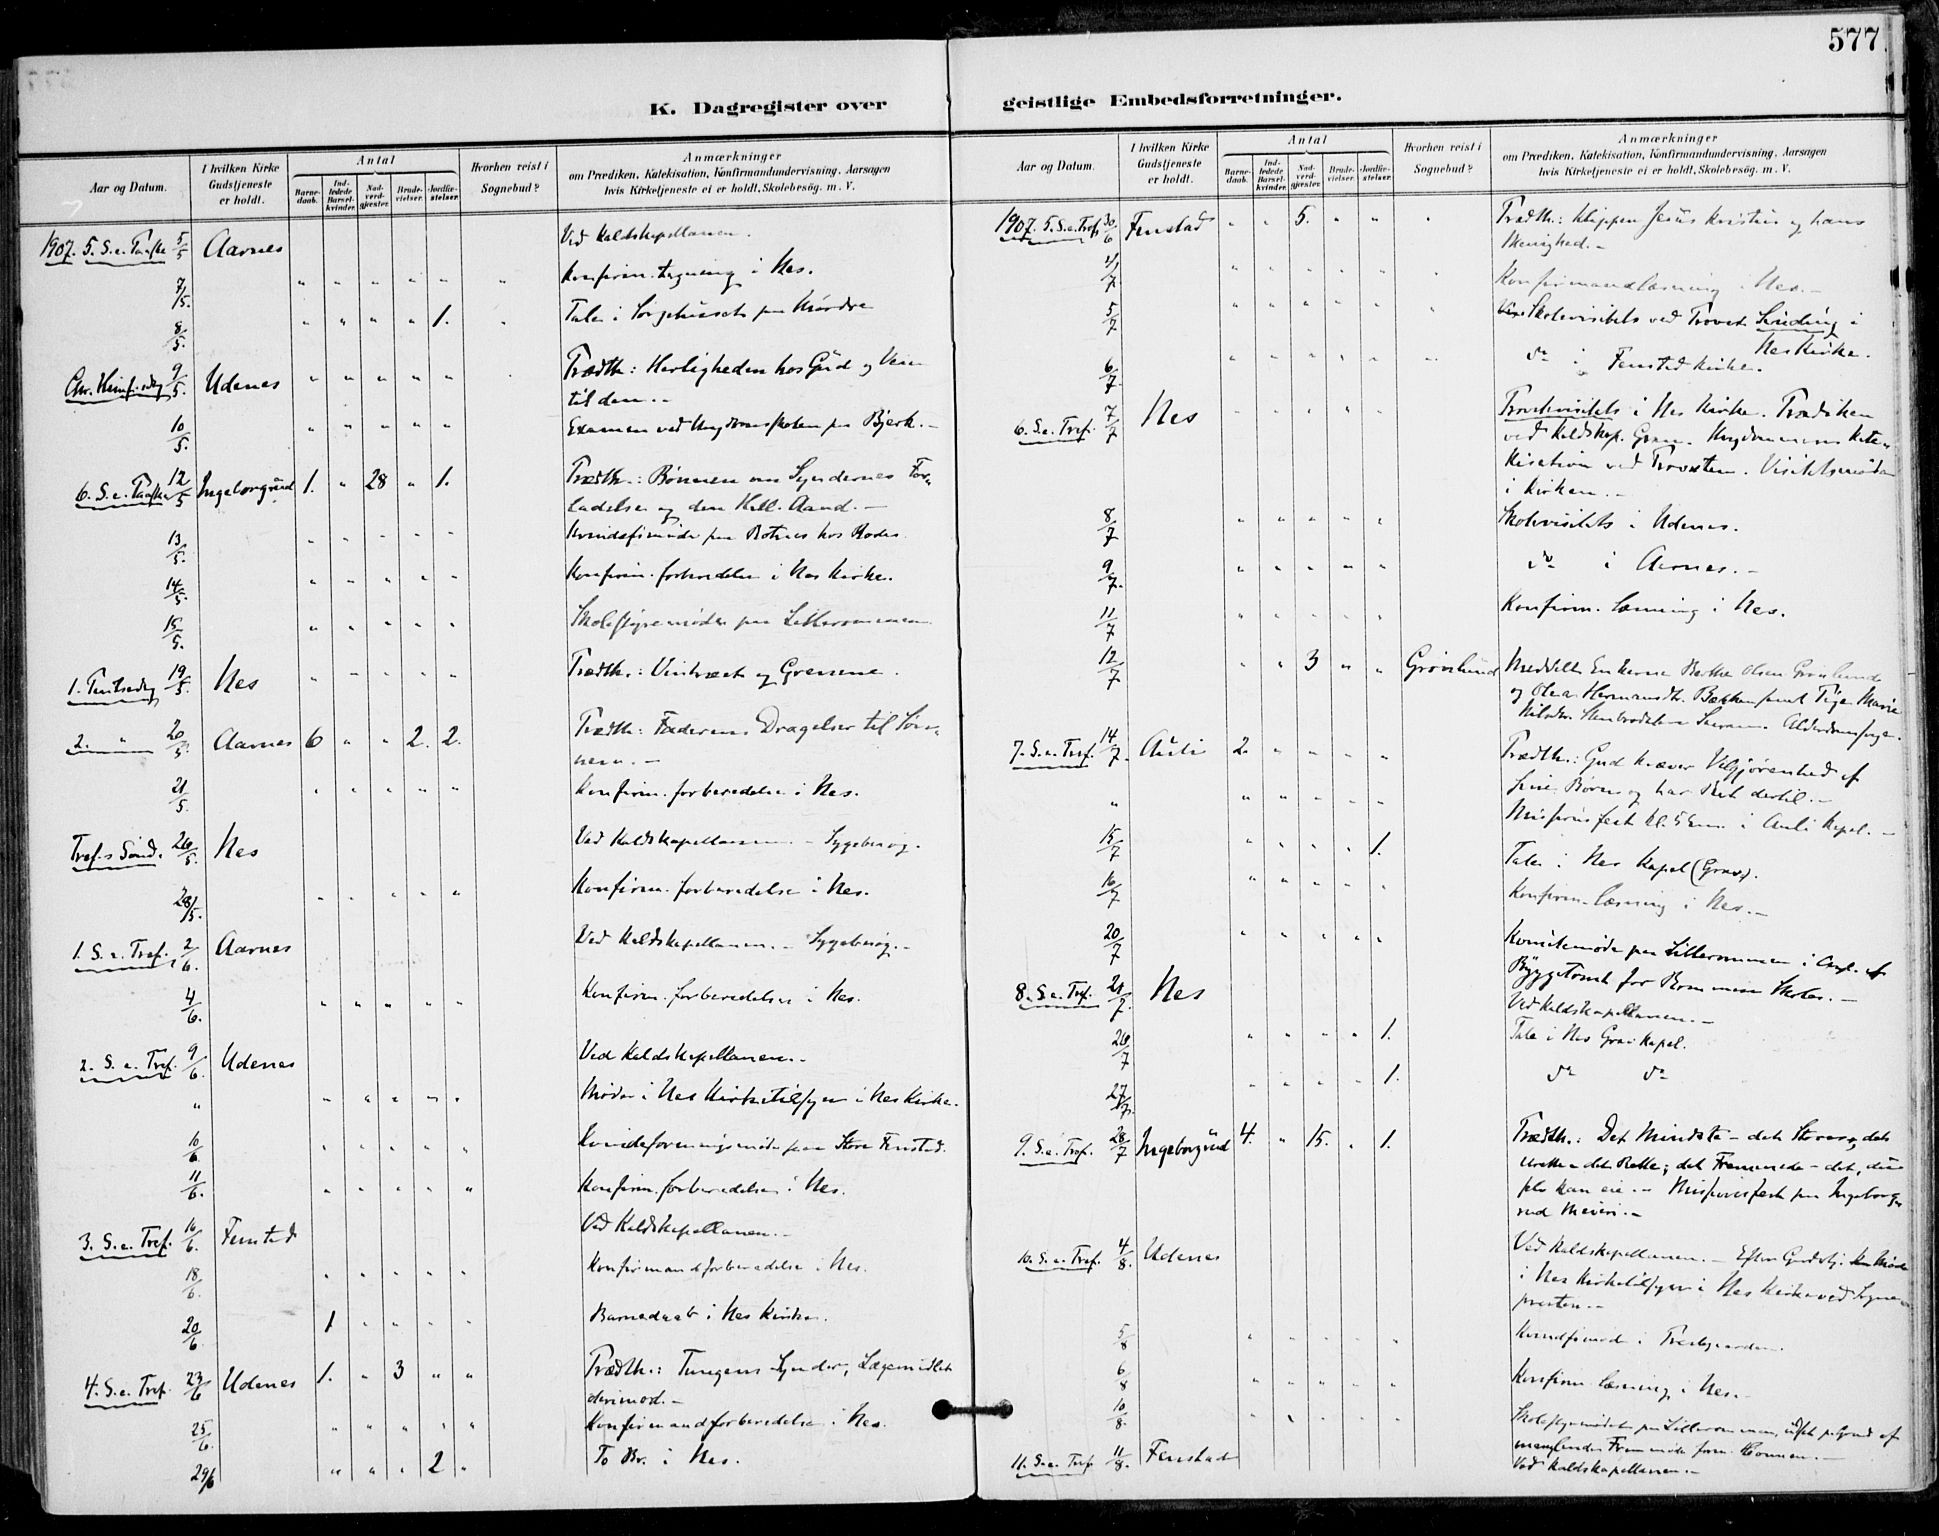 577
K. Dagregister over
geistlige Embedsforretninger.
Aar og Datum.
I hvilken Kirke Gudstjeneste er holdt.
Antal
Barne-daab.
Ind-ledede Barsel-kvinder.
Nad-verd-gjester.
Brude-vielser.
Jordfæ-stelser.
Hvorhen reist i Sognebud?
Anmærkninger
om Prædiken, Katekisation, Konfirmandundervisning, Aarsagen
hvis Kirketjeneste ei er holdt, Skolebesøg. m. V.
1907. 5. S. e. Paaske 5/5 Aarnes Ved Kaldskapellanen.
7/5. " " " " " " Konfirm. tagning i Nes.
8/5 " " " " 1. " Tale i Sørgehuset paa Mordre
Chr. Himf.dag 9/5. Udenes " " " " " Prædth: Herligheden hos Gud og Veien
til den.-
10/5. " " " " " Examen ved Ungdomsskolen paa Bjerk.-
6. S. e. Paaske 12/5 Ingeborgrud 1. " 28 " 1. Prædth.: Bønnen om Syndernes For-
ladelse og den Hell. Aand.-
13/5. " " " " " paa hos
14/5. " " " " " Konfirm. forberedelse i Nes Kirke.
15/5. " " " " " Skolestyremøde paa
1. Pintsedag 19/5. Nes " " " " " Prædth.: Vintræet og Grenene.
2. " 20/5. Aarnes 6 " " 2. 2. Prædth: Faderens Dragelser til Søn-
nen.-
21/5. " " " " " Konfirm. forberedelse i Nes.
Tref.s Sønd. 26/5. Nes Ved Kaldskapellanen. - Sygebesøg.
28/5. " " " " " Konfirm. forberedelse i Nes.
1. S. e. Tref. 2/6. Aarnes Ved Kaldskapellanen. - Sygebesøg.-
4/6. " " " " " Konfirm. forberedelse i Nes.
2. S. e. Tref. 9/6. Udenes Ved Kaldskapellanen.-
" " " " " " Møde i Nes Kirketilsyn i Nes Kirke.
10/6. " " " " " Kvindeforeningsmøde paa Store Fenstad.
11/6. " " " " " Konfirm. forberedelse i Nes.
3. S. e. Tref. 16/6. Fenstad Ved Kaldskapellanen.-
18/6. " " " " " Konfirmandforberedelse i Nes.
20/6. 1 " " " " Barnedaab i Nes Kirke.
4. S. e. Tref. 23/6 Udenes 1. " 3 " " Prædth.: Tungens Synder, Lægemidlet
derimod.-
25/6. " " " " " Konfirmandforberedelse i Nes.
29/6 " " " 2 " To Br. i Nes.
Aar og Datum.
I hvilken Kirke Gudstjeneste er holdt.
Antal
Barne-daab.
Ind-ledede Barsel-kvinder.
Nad-verd-gjester.
Brude-vielser.
Jordfæ-stelser.
Hvorhen reist i Sognebud?
Anmærkninger
om Prædiken, Katekisation, Konfirmandundervisning, Aarsagen
hvis Kirketjeneste ei er holdt, Skolebesøg. m. V.
1907. 5. S. e. Tref. 30/6 Fenstad " " 5. " " " Prædth.: Klippen Jesus Kristus og hans
Menighed.-
4/7 " " " " " " Konfirmandlæsning i Nes.-
5/7 " " " " " " Skolevisitats ved Provst Sinding i
Nes Kirke.
6/7 " " " " " " do i Fenstad Kirke.
6. S. e. Tref. 7/7 Nes " " " " " Provstevisitats i Nes Kirke. Prædiken
ved Kaldskap. Gram. Ungdommens Kate-
kisation ved Provsten. Visitatsmøde
i Kirken.-
8/7 " " " " " Skolevisitats i Udenes.
9/7. " " " " " do i Aarnes.-
11/7 " " " " " Konfirm. læsning i Nes.
12/7 " " 3 " " Grønlund Meddelt Enkerne Berthe Olsen Grønlund
og Olea Hermansdtr. Bakken samt Pige Marie
Nilsdtr. Alderdomssyge.
7. S. e. Tref. 14/7. Auli 2. " " " " Prædth.: Gud kræver Velgjørenhed af
sine Børn og har Ret dertil.-
" " " " " " Missionsfest Kl. 5 Em. i Auli Kapel.-
15/7 " " " " 1. Tale i Nes Kapel (Grav).
16/7 " " " " " Konfirm. læsning i Nes.-
20/7 " " " " " Komitemøde paa i Anl. af
Byggetomt for Skole.-
8. S. e. Tref. 21/7. Nes Ved Kaldskapellanen.-
26/7 " " " " 1. Tale i Nes Gravkapel.
27/7. " " " " 1. do do
9. S. e. Tref. 28/7 Ingeborgrud 4. " 15. " 1. Prædth.: Det Mindste - det Store, det
Urette - det Rette; det Fremmede - det, du
selv kan eie.- Missionsfest paa Ingeborg-
rud Meieri.-
10. S. e. Tref. 4/8. Udenes Ved Kaldskapellanen. - Efter Gudstj. Møde
i Nes Kirketilsyn i Nes Kirke ved Sogne-
presten.-
5/8 " " " " " i Prestegaarden.
6/8 " " " " " Konfirm. læsning i Nes.-
10/8. " " " " " Skolestyremøde paa paa Grund af
manglende Fremmøde
11. S. e. Tref 11/8. Fenstad Ved Kaldskapellanen.-